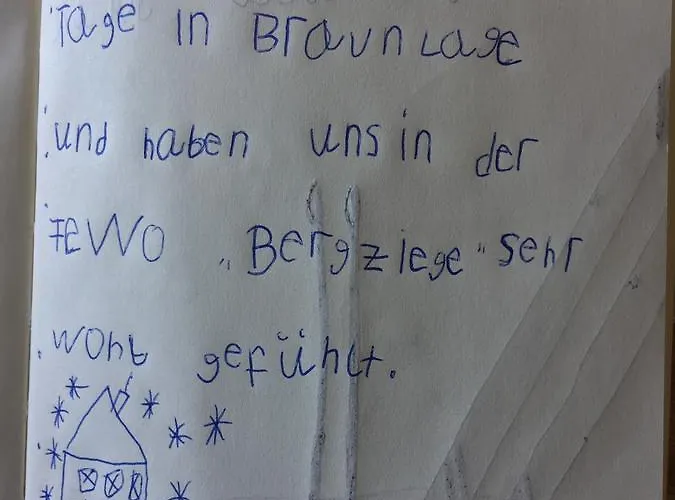 Tage in Braunlage
und haben uns in der
FEWO „Bergziege" sehr
wohl gefühlt.